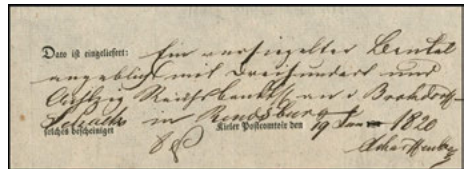 Dato ist eingeliefert: Ein versiegelter Beutel
angeblich mit Dreihundert und
Achtzig Reichsbankth an
in Rendsburg
solches bescheiniget Kieler Postcomtoir den 19 Jan 1820